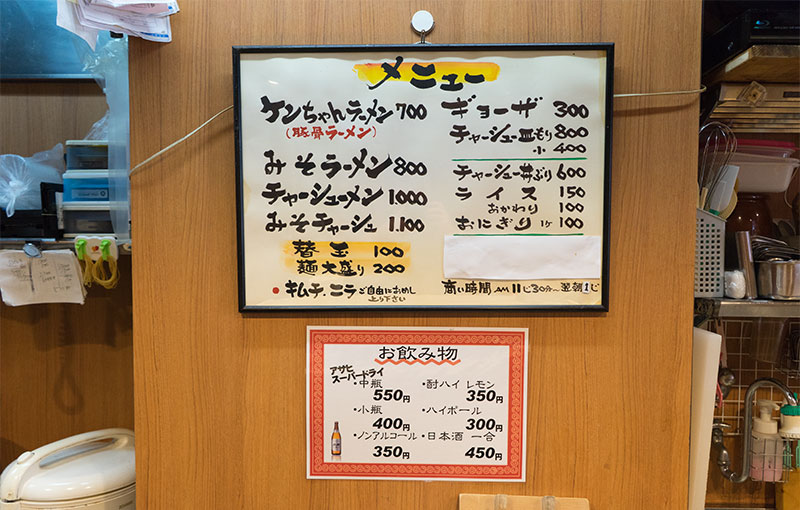 メニュー
ケンちゃんラーメン 700
(豚骨ラーメン)
みそラーメン 800
チャーシューメン 1.000
みそチャーシュ 1.100
替玉 100
麺大盛り 200
キムチ.ニラ ご自由におめし
上り下さい
ギョーザ 300
チャーシュー皿もり 800
小 400
チャーシュー丼ぶり 600
ライス 150
おかわり 100
おにぎり 1ケ 100
商い時間 AM 11じ30分〜翌朝1じ
お飲み物
アサヒ
スーパードライ
・中瓶
550円
・小瓶
400円
・ノンアルコール
350円
・酎ハイ レモン
350円
・ハイボール
300円
・日本酒 一合
450円